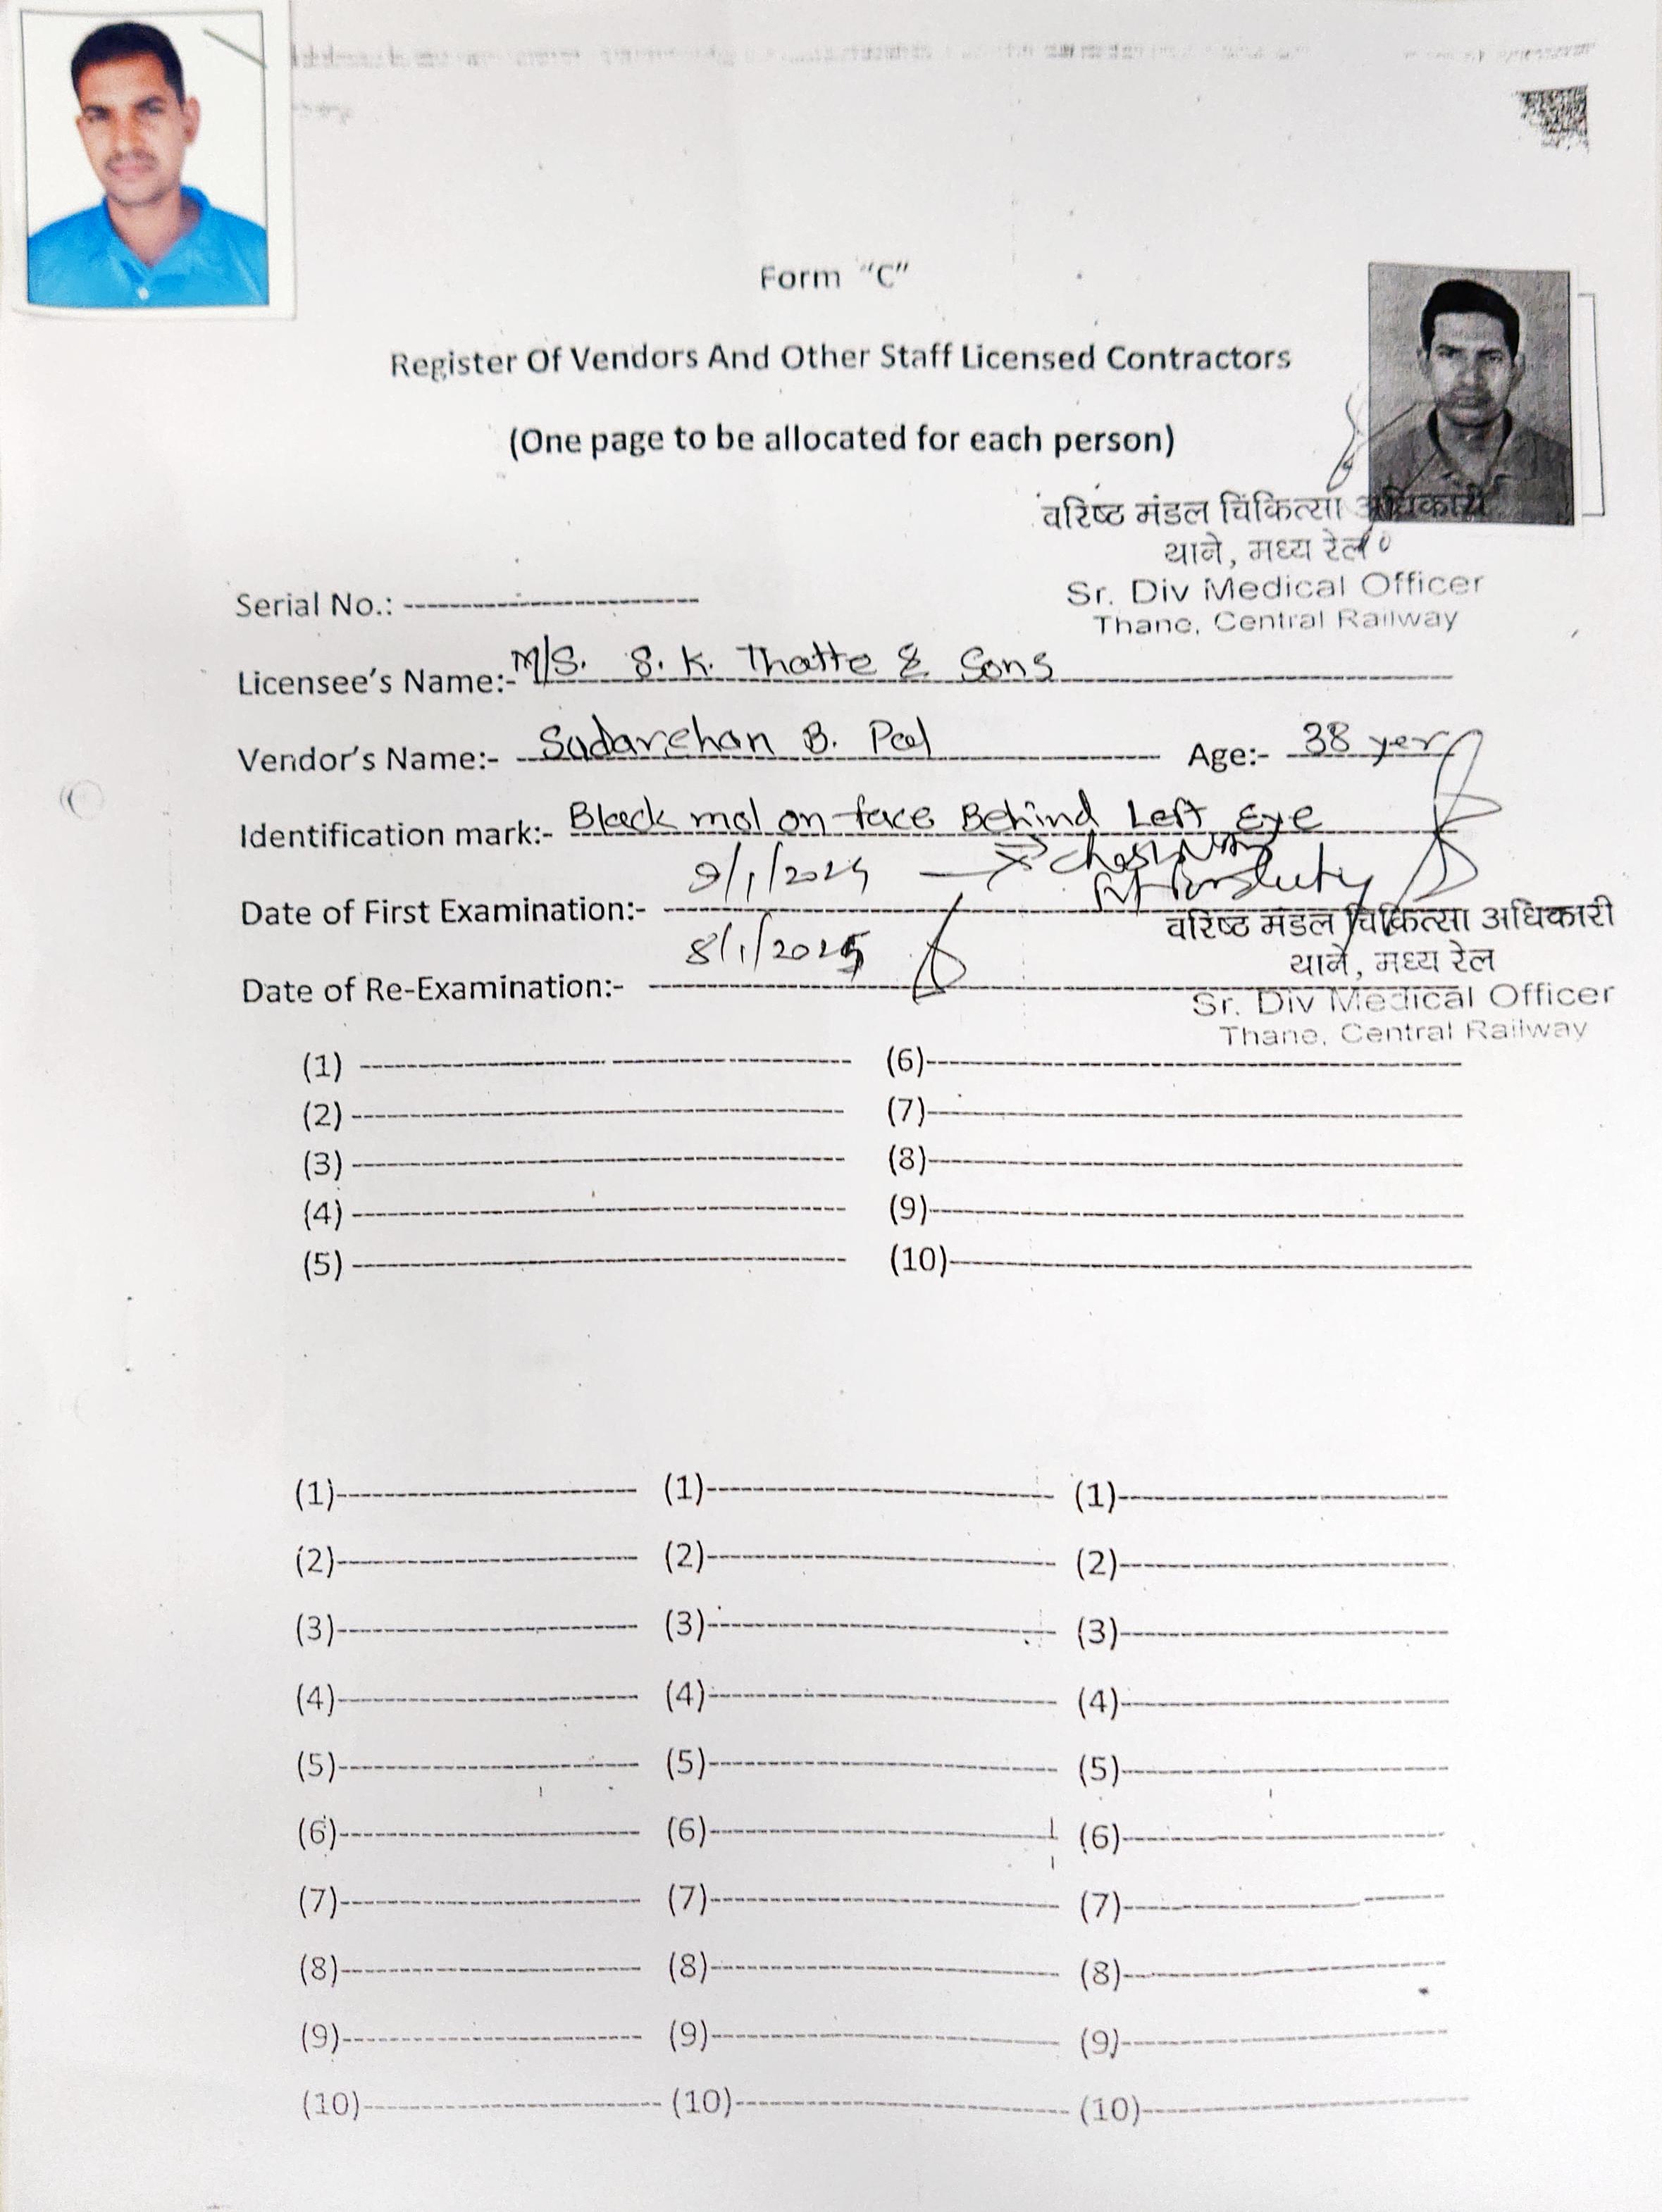 Form "C"
Register Of Vendors And Other Staff Licensed Contractors
(One page to be allocated for each person)
वरिष्ठ मंडल चिकित्सा अधिकारी
थाने, मध्य रेल
Sr. Div Medical Officer
Thane, Central Railway
Serial No.:
Licensee's Name:- M/S. S. K. Thatte & Sons
Vendor's Name:- Sudarshan B. Pal Age:- 38 yer
Identification mark:- Black mol on face Behind Left Eye
Date of First Examination:- 9/1/2024
वरिष्ठ मंडल चिकित्सा अधिकारी
थाने, मध्य रेल
Date of Re-Examination:- 8/1/2025
Sr. Div Medical Officer
Thane, Central Railway
(1) (6)
(2) (7)
(3) (8)
(4) (9)
(5) (10)
(1) (1) (1)
(2) (2) (2)
(3) (3) (3)
(4) (4) (4)
(5) (5) (5)
(6) (6) (6)
(7) (7) (7)
(8) (8) (8)
(9) (9) (9)
(10) (10) (10)